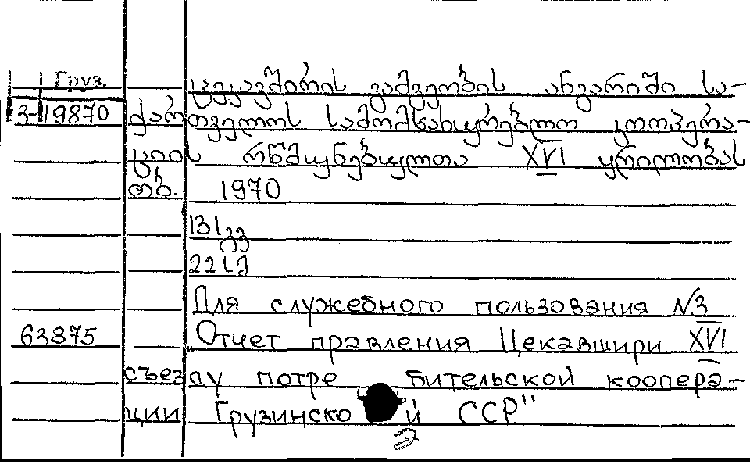 Груз.
ცეკავშირის გამგეობის ანგარიში სა-
3-19870 ქართველოს სამომხმარებლო კოოპერა-
ციის რწმუნებულთა XVI ყრილობას
თბ. 1970
131 გვ
22 L J
Для служебного пользования №3
63875 Отчет правления Цекавшири XVI
съезду потребительской коопера-
ции Грузинской ССР"